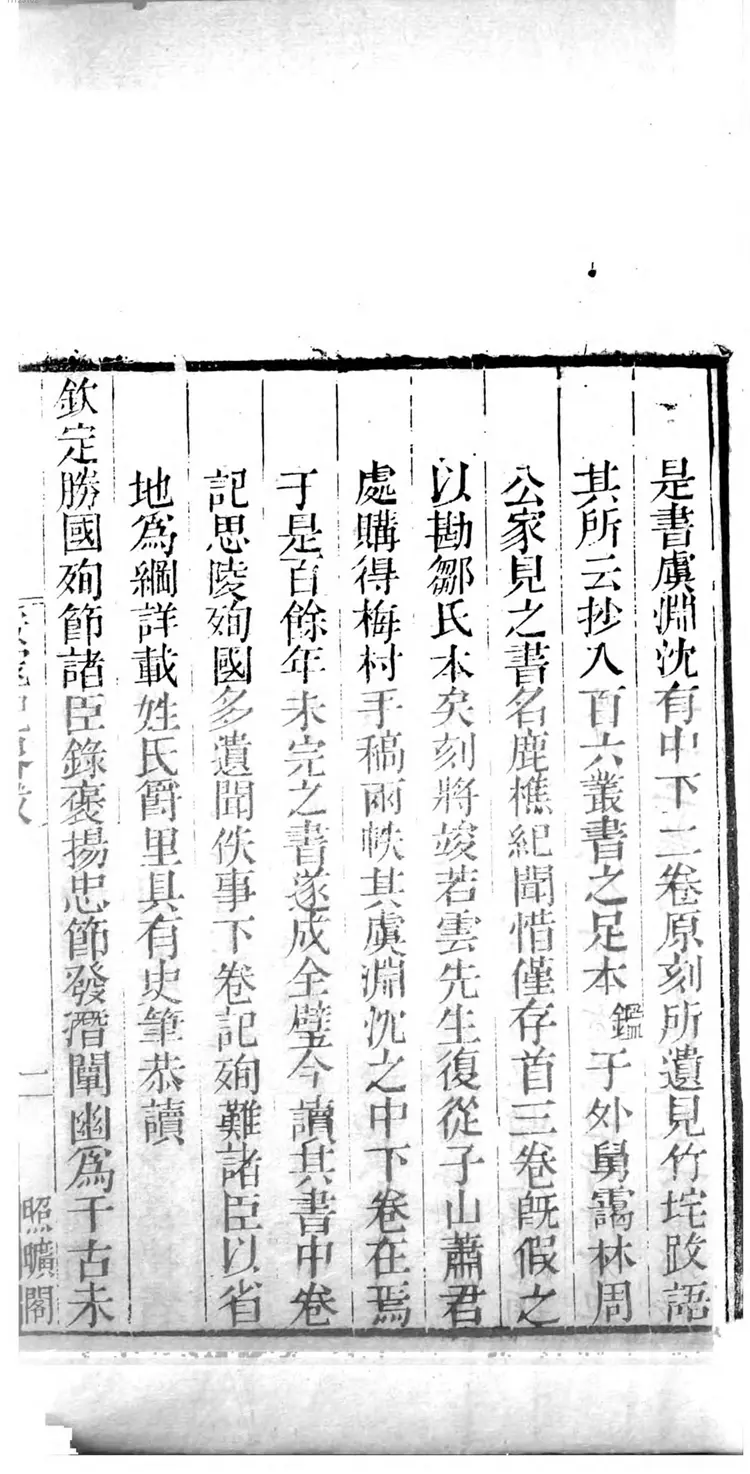 是書虞淵沈有中下二卷原刻所遺見竹垞跋語
其所云抄入百六叢書之足本鑑于外舅靄林周
公家見之書名鹿樵紀聞惜僅存首三卷旣假之
以勘鄒氏本矣刻將竣若雲先生復從子山蕭君
處購得梅村手稿兩帙其虞淵沈之中下卷在焉
于是百餘年未完之書遂成全璧今讀其書中卷
記思陵殉國多遺聞佚事下卷記殉難諸臣以省
地爲綱詳載姓氏爵里具有史筆恭讀
欽定勝國殉節諸臣錄褒揚忠節發潛闡幽爲千古未
二
照曠閣